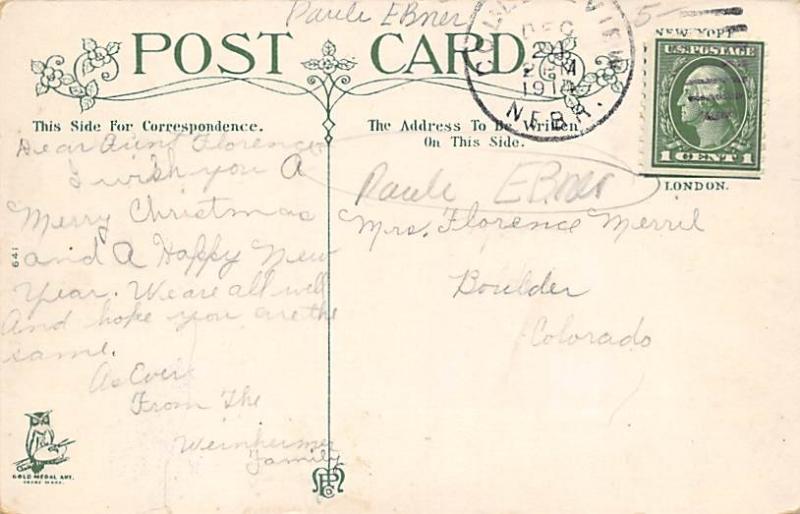 Paule EBner
POST CARD.
NEW YORK
DEC
21
2 PM
1914
NEBR.
U.S. POSTAGE
1 CENT 1
LONDON.
This Side For Correspondence.
The Address To Be Written
On This Side.
Dear Aunt Florence
I wish you A
Merry Christmas
and A Happy New
Year. We are all well
And hope you are the
same.
As Ever
From The
Weinheimer
Family
Paule EBner
Mrs. Florence Merril
Boulder
Colorado
641
GOLD MEDAL ART.
TRADE MARK.